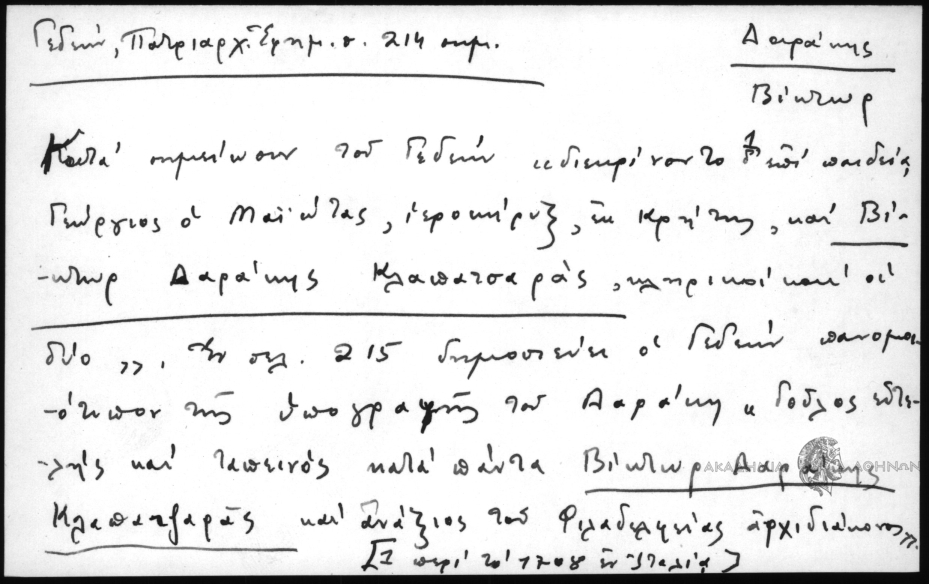 Γεδεών, Πατριαρχ. Ἐφημ. σ. 214 σημ.
Δαράκης
Βίκτωρ
Κατά σημείωσιν τοῦ Γεδεών "διεκρίνοντο δ' ἐπί παιδείᾳ
Γεώργιος ὁ Μαϊώτας, ἱεροκήρυξ, ἐκ Κρήτης, καί Βί-
-κτωρ Δαράκης Κλαπατσαρᾶς, κληρικοί καί οἱ
δύο". Ἐν σελ. 215 δημοσιεύει ὁ Γεδεών πανομοι-
-ότυπον τῆς ὑπογραφῆς τοῦ Δαράκη "δοῦλος εὐτε-
-λής καί ταπεινός κατά πάντα Βίκτωρ Δαράκης
Κλαπατζαρᾶς καί ἀνάξιος τοῦ Φιλαδελφείας ἀρχιδιάκονος".
περί τό 1708 ἐν Ἰταλίᾳ]
ΑΚΑΔΗΜΙΑ ΑΘΗΝΩΝ